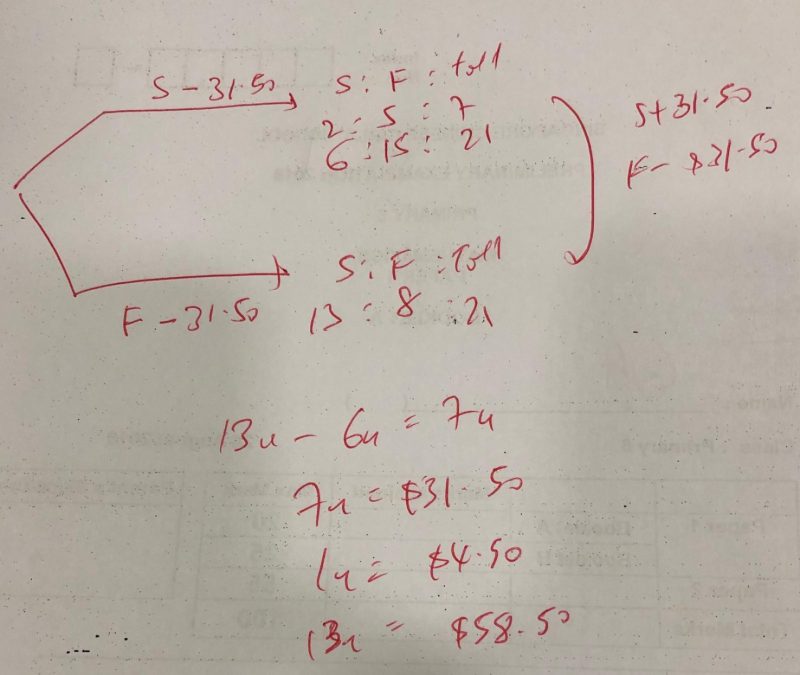 S - 31.50
S : F : totl
2 : 5 : 7
6 : 15 : 21
S + 31.50
F - $31.50
F - 31.50
S : F : Totl
13 : 8 : 21
13u - 6u = 7u
7u = $31.50
1u = $4.50
13u = $58.50